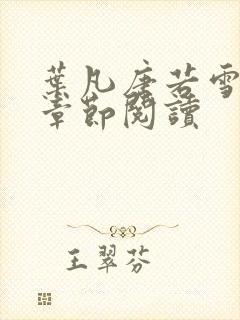 葉凡唐若雪
章節閱讀
王翠芬